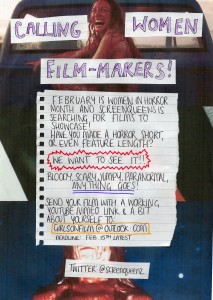 CALLING WOMEN
FILM-MAKERS!
FEBRUARY IS WOMEN IN HORROR
MONTH AND SCREENQUEENS IS
SEARCHING FOR FILMS TO
SHOWCASE!
HAVE YOU MADE A HORROR SHORT,
OR EVEN FEATURE LENGTH?
WE WANT TO SEE IT!!
BLOODY, SCARY, JUMPY, PARANORMAL,
ANYTHING GOES!
SEND YOUR FILM WITH A WORKING
YOUTUBE/VIMEO LINK & A BIT
ABOUT YOURSELF TO:
GIRLSONFILM@OUTLOOK.COM
DEADLINE: FEB 15TH LATEST
TWITTER @SCREENQUEENZ